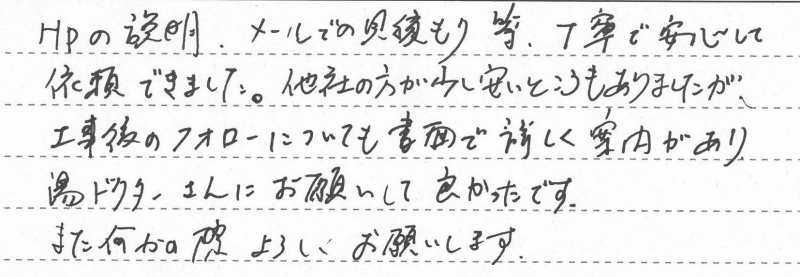 HPの説明、メールでの見積もり等、丁寧で安心して
依頼できました。他社の方が少し安いところもありましたが、
工事後のフォローについても書面で詳しく案内があり
湯ドクターさんにお願いして良かったです。
また何かの際よろしくお願いします。